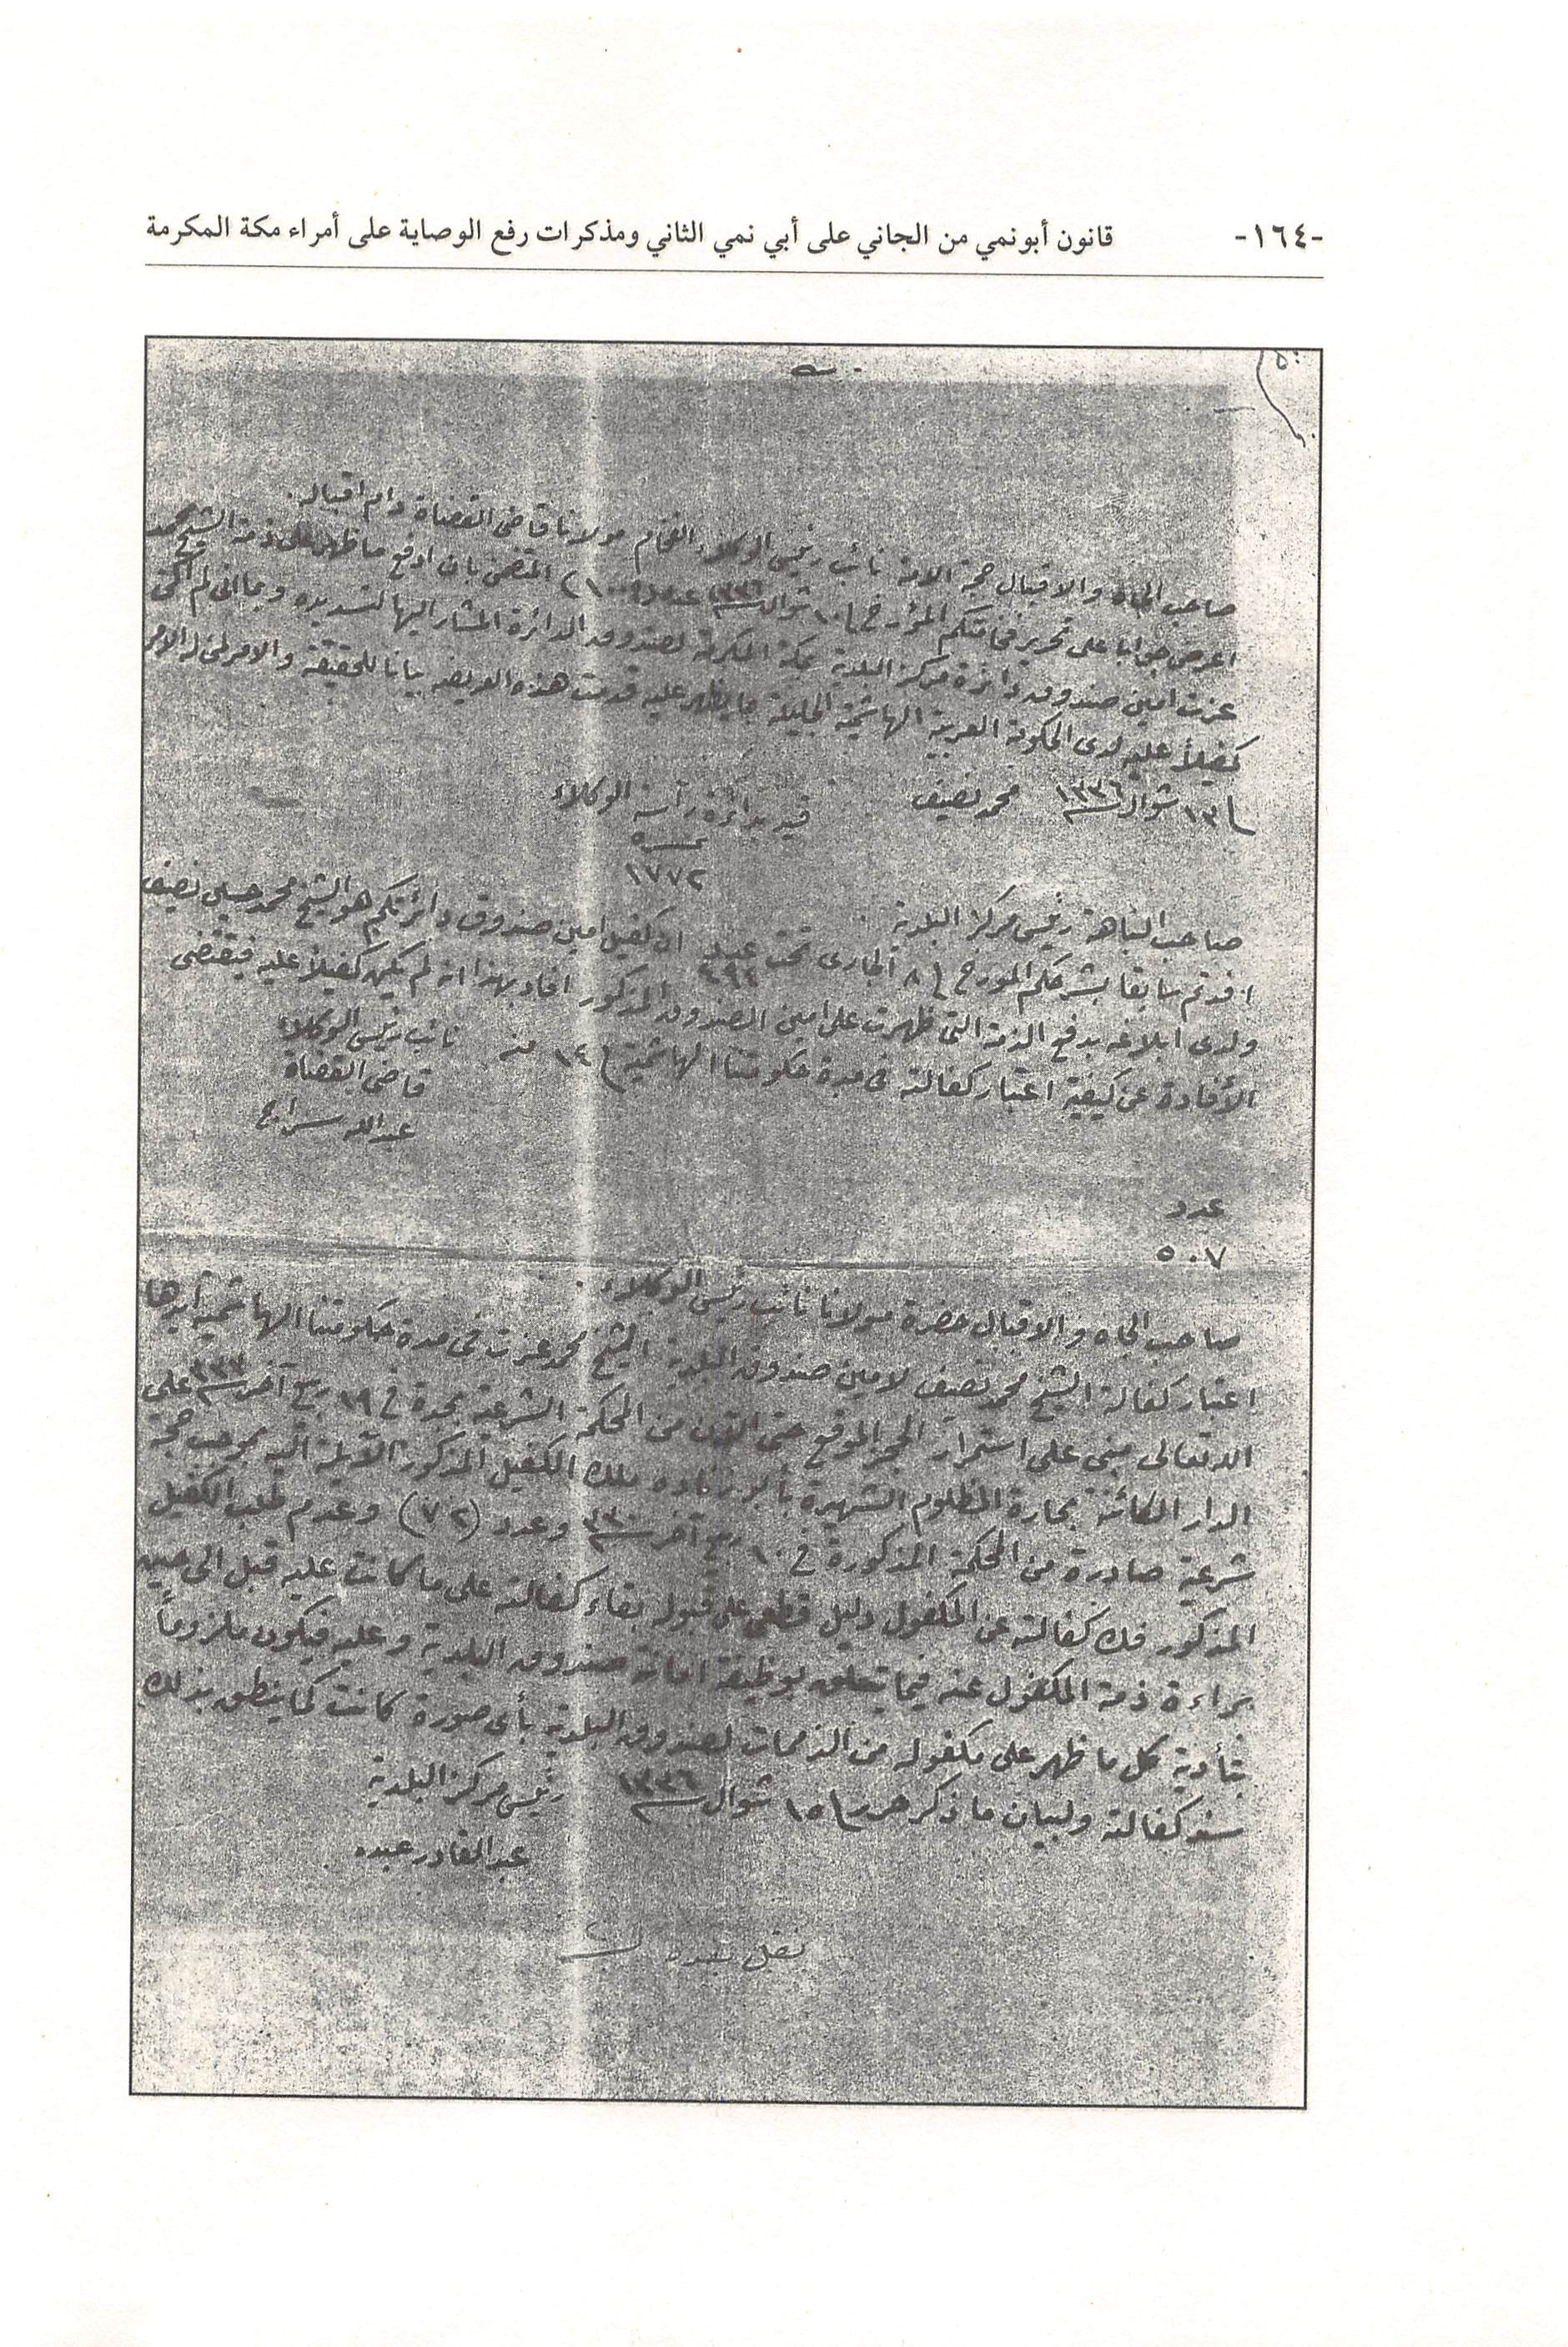 -١٦٤- قانون أبونمي من الجاني على أبي نمي الثاني ومذكرات رفع الوصاية على أمراء مكة المكرمة
صاحب الجاه والاقبال حجة الامة نائب رئيس الوكلاء الفخام مولانا قاضى القضاة دام اقباله
اعرض جوابا على تحرير فخامتكم المؤرخ ١٠ شوال سنة ١٣٣٦ عدد المتضمن بان ادفع ما ظهر على ذمة الشيخ محمد
عزت امين صندوق دائرة مركز البلدية بمكة المكرمة لصندوق الدائرة المشار اليها لتسديده وبما انى لم اكن
كفيلاً عليه لدى الحكومة العربية الهاشمية الجليلة بما يظهر عليه قدمت هذه العريضه بيانا للحقيقة والامر لمن له الامر
١٣ شوال سنة ١٣٣٦ محمد نصيف
قيد بدائرة رآسة الوكلاء
١٧٧٢
صاحب النباهة رئيس مركز البلدية
افدتم سابقا بشرحكم المورخ ٨ الجارى تحت عدد ٤٩٤ ان كفيل امين صندوق دائرتكم هو الشيخ محمد حسين نصيف
ولدى ابلاغه بدفع الذمة التى ظهرت على امين الصندوق المذكور افاد بهذا انه لم يكن كفيلاً عليه فيقتضى
الأفادة عن كيفية اعتبار كفالته فى مدة حكومتنا الهاشمية ١٤ منه
نائب رئيس الوكلاء
قاضى القضاة
عبدالله سراج
عدد
٥٠٧
صاحب الجاه والاقبال حضرة مولانا نائب رئيس الوكلاء
اعتبار كفالة الشيخ محمد نصيف لامين صندوق البلدية الشيخ محمد عزت فى مدة حكومتنا الهاشمية أيدها
الله تعالى مبنى على استمرار الحجر الموقع حتى الآن من المحكمة الشرعية بجدة فى ١٩ ربيع آخر سنة على
الدار الكائنة بحارة المظلوم الشهيرة ملك الكفيل المذكور الآيلة اليه بموجب حجة
شرعية صادرة من المحكمة المذكورة فى ١٠ ربيع آخر سنة وعدد (٧٢) وعدم طلب الكفيل
المذكور فك كفالته عن المكفول دليل قطعى على قبوله بقاء كفالته على ما كانت عليه قبل الى حين
براءة ذمة المكفول عنه فيما يتعلق بوظيفة امانة صندوق البلدية وعليه فيكون ملزوماً
بتأدية كل ما ظهر على مكفوله من الذممات لصندوق البلدية بأى صورة كانت كما ينطق بذلك
سند كفالته ولبيان ما ذكر حرر ١٥ شوال سنة ١٣٣٦
رئيس مركز البلدية
عبدالقادر عبده